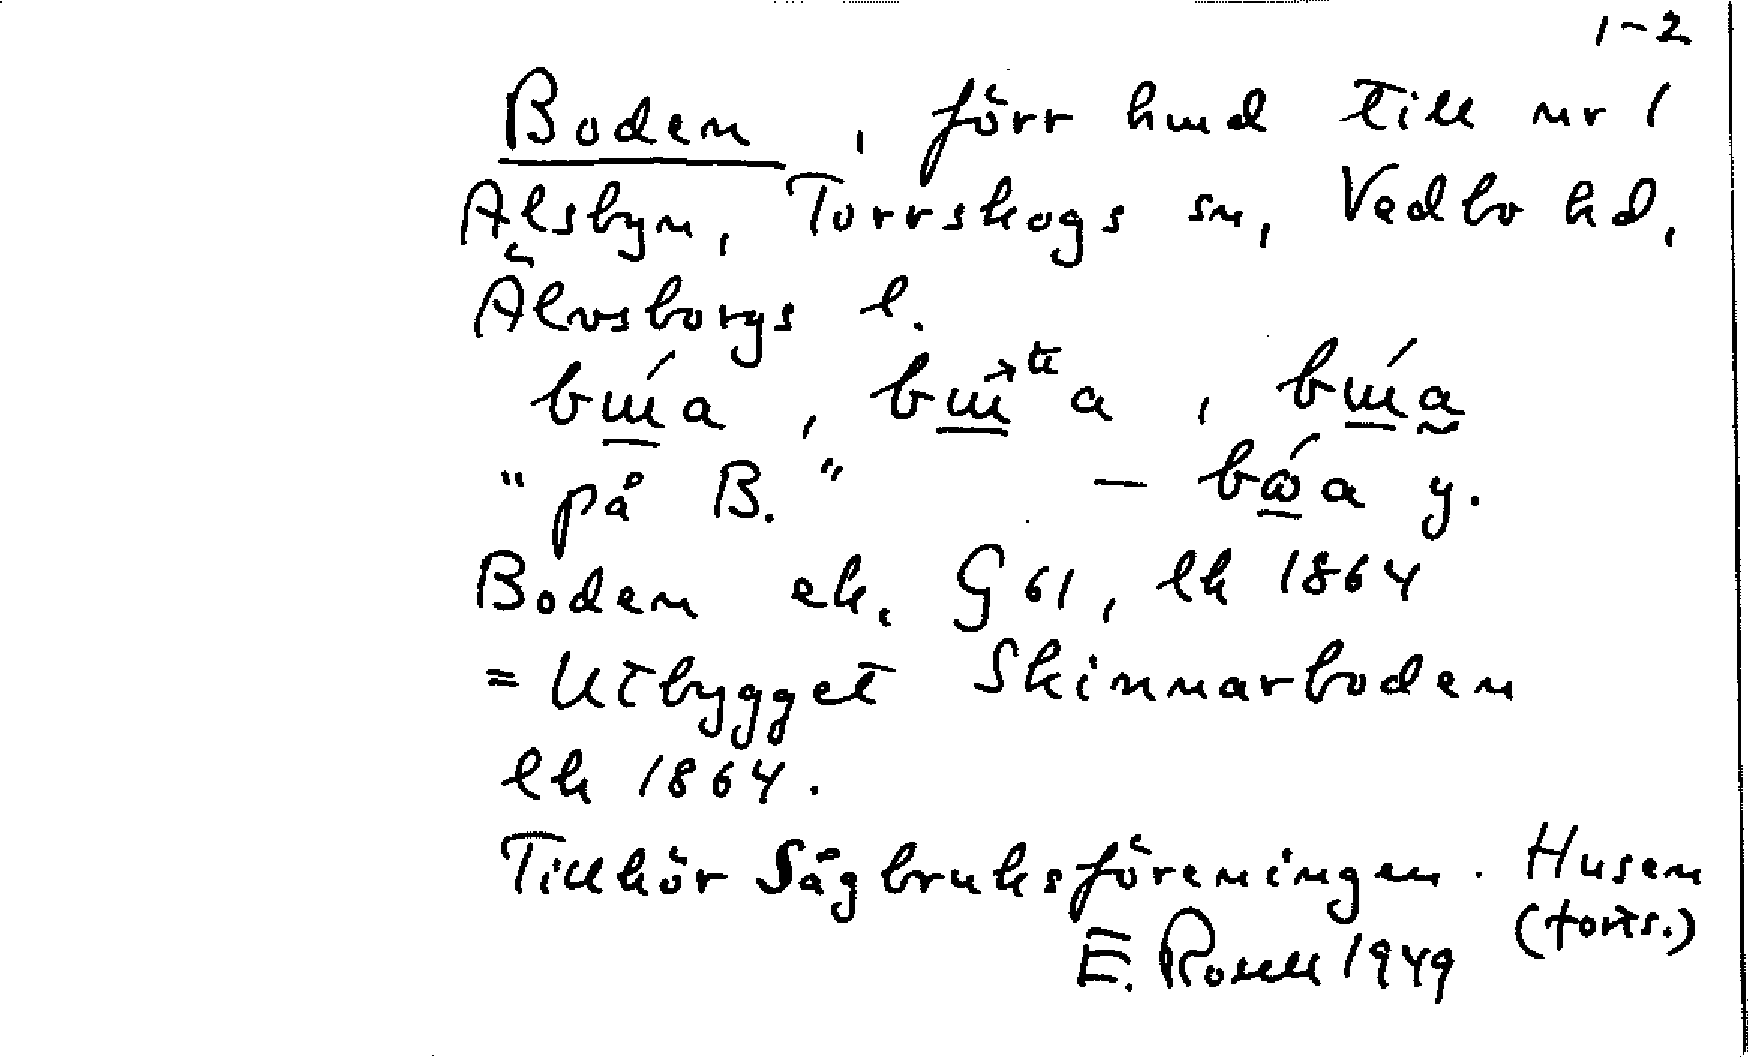 1-2
Boden, förr hmd till nr 1
Alsbyn, Torrskogs sn, Vedbo hd,
Älvsborgs l.
"på B." — y.
Boden ek. G 61, lk 1864
= Utbygget Skinnarboden
lk 1864.
Tillhör Sågbruksföreningen. Husen
(forts.)
E. Rosell 1949